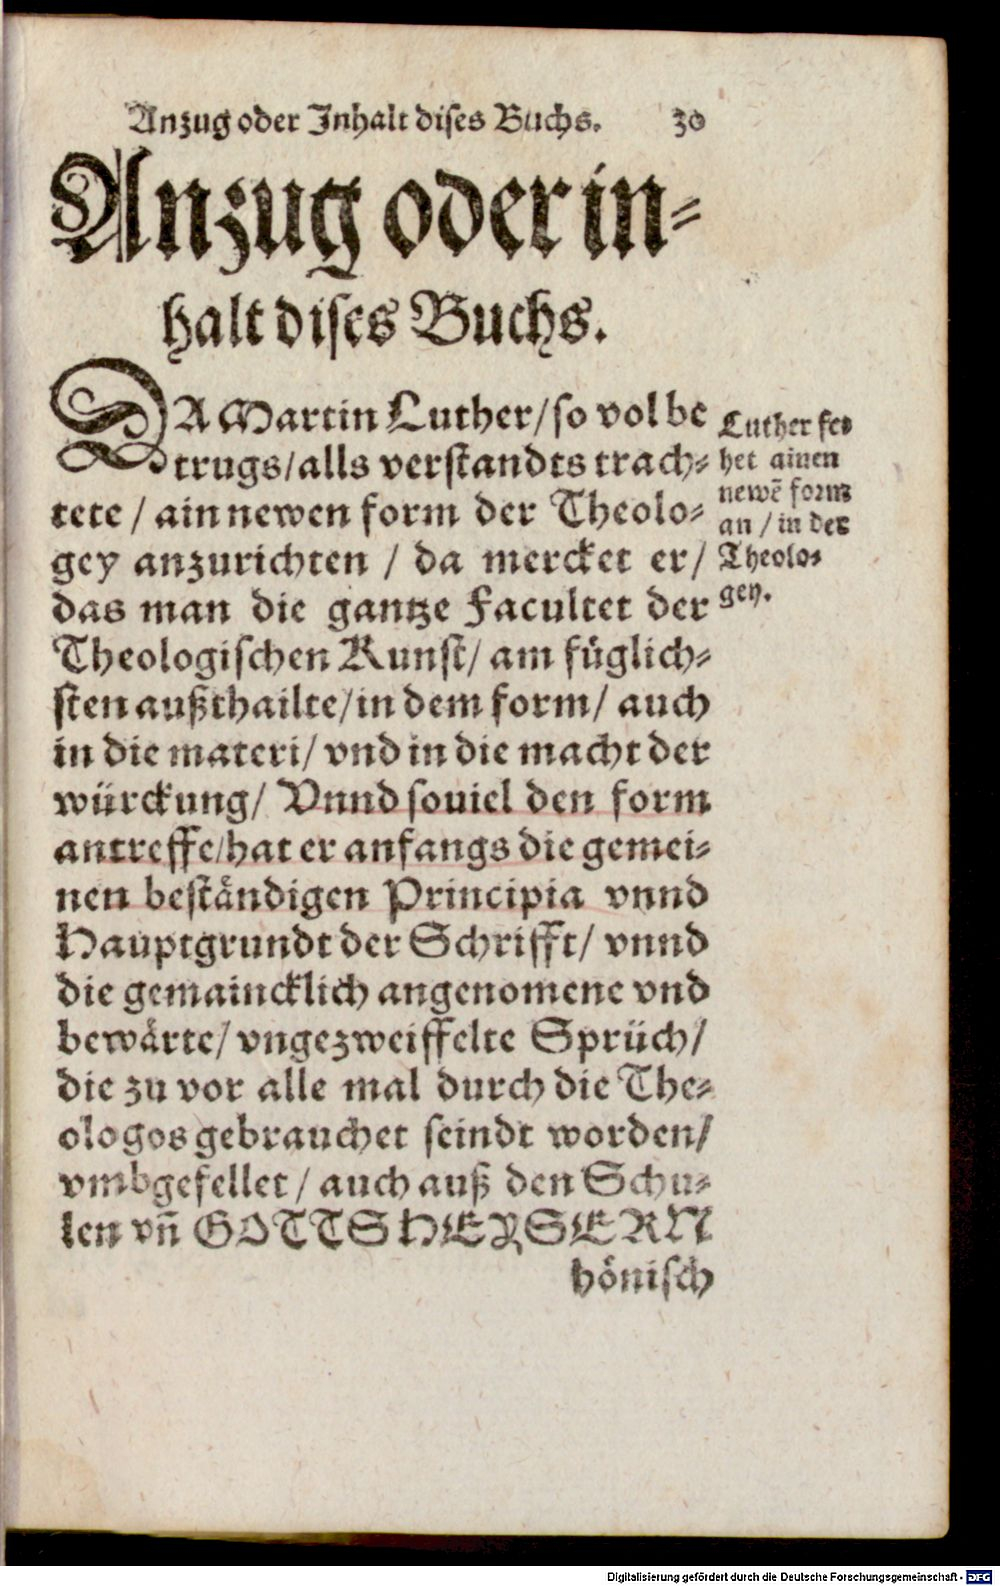 Anzug oder Inhalt dises Buchs. 30
Anzug oder in-
halt dises Buchs.
DA Martin Luther/ so vol be
trugs/ alls verstandts trach-
tete / ain newen form der Theolo-
gey anzurichten / da mercket er/
das man die gantze Facultet der
Theologischen Kunst/ am füglich-
sten außthailte/ in dem form/ auch
in die materi/ vnd in die macht der
würckung/ Vnnd souiel den form
antreffe/ hat er anfangs die gemei-
nen beständigen Principia vnnd
Hauptgrundt der Schrifft/ vnnd
die gemaincklich angenomene vnd
bewärte/ vngezweiffelte Sprüch/
die zu vor alle mal durch die The-
ologos gebrauchet seindt worden/
vmbgefellet / auch auß den Schu-
len vñ GOTTSHEYSERN
hönisch
Luther fe-
het ainen
newẽ form
an / in der
Theolo-
gey.
Digitalisierung gefördert durch die Deutsche Forschungsgemeinschaft - DFG